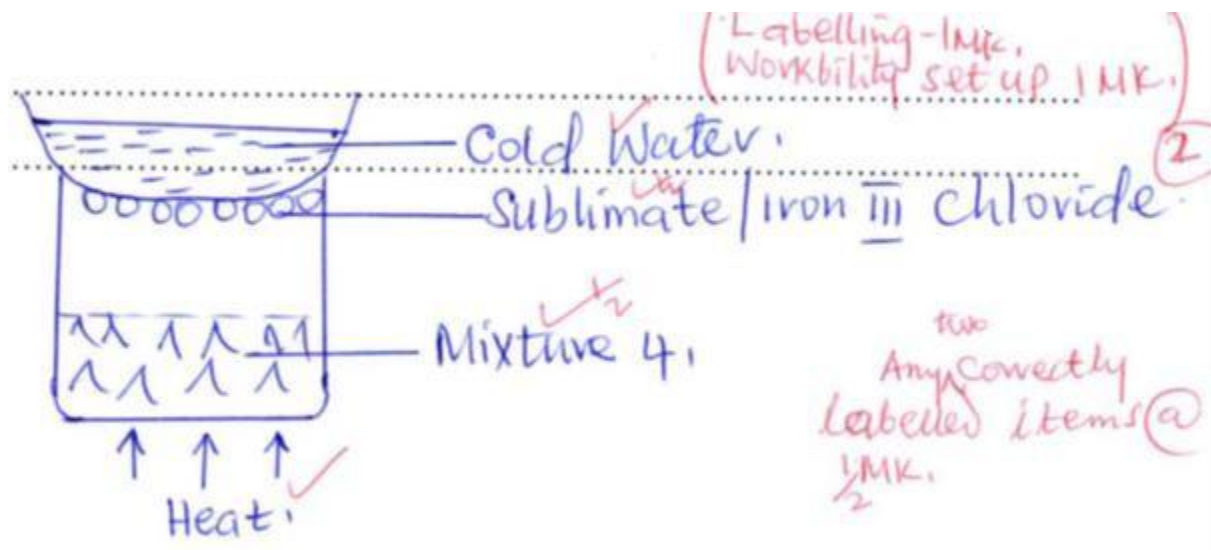 Labelling-1Mk.
Workbility set up 1 MK.
2
Cold Water.
Sublimate/iron III Chloride.
1/2
Mixture 4.
two
Any Correctly
labelled items @
1/2 MK.
Heat.